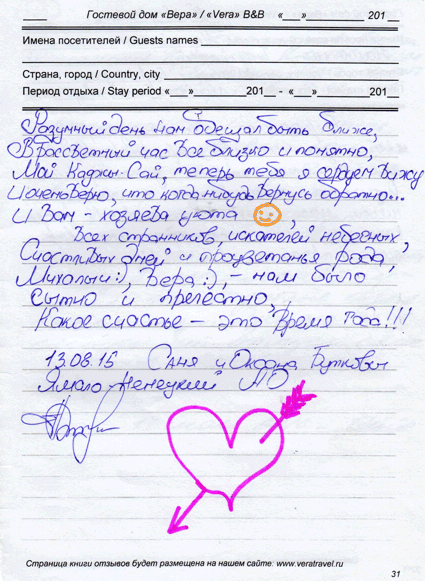 Гостевой дом «Вера» / «Vera» B&B «___» __________ 201__
Имена посетителей / Guests names
Страна, город / Country, city
Период отдыха / Stay period «___»__________201__ - «___»__________201__
Разумный день нам обещал быть ближе,
В рассветный час все близко и понятно,
Мой Каджи-Сай, теперь тебя я сердцем вижу
И очень верю, что когда нибудь вернусь обратно...
И Вам - хозяева уюта ☺,
Всех странников, искателей небесных,
Счастливых дней и процветанья рода,
Михалыч:), Вера:), - нам было
Сытно и прелестно,
Какое счастье - это Время года!!!
13.08.16 Саня и Оксана Буткович
Ямало-Ненецкий АО
Страница книги отзывов будет размещена на нашем сайте: www.veratravel.ru
31